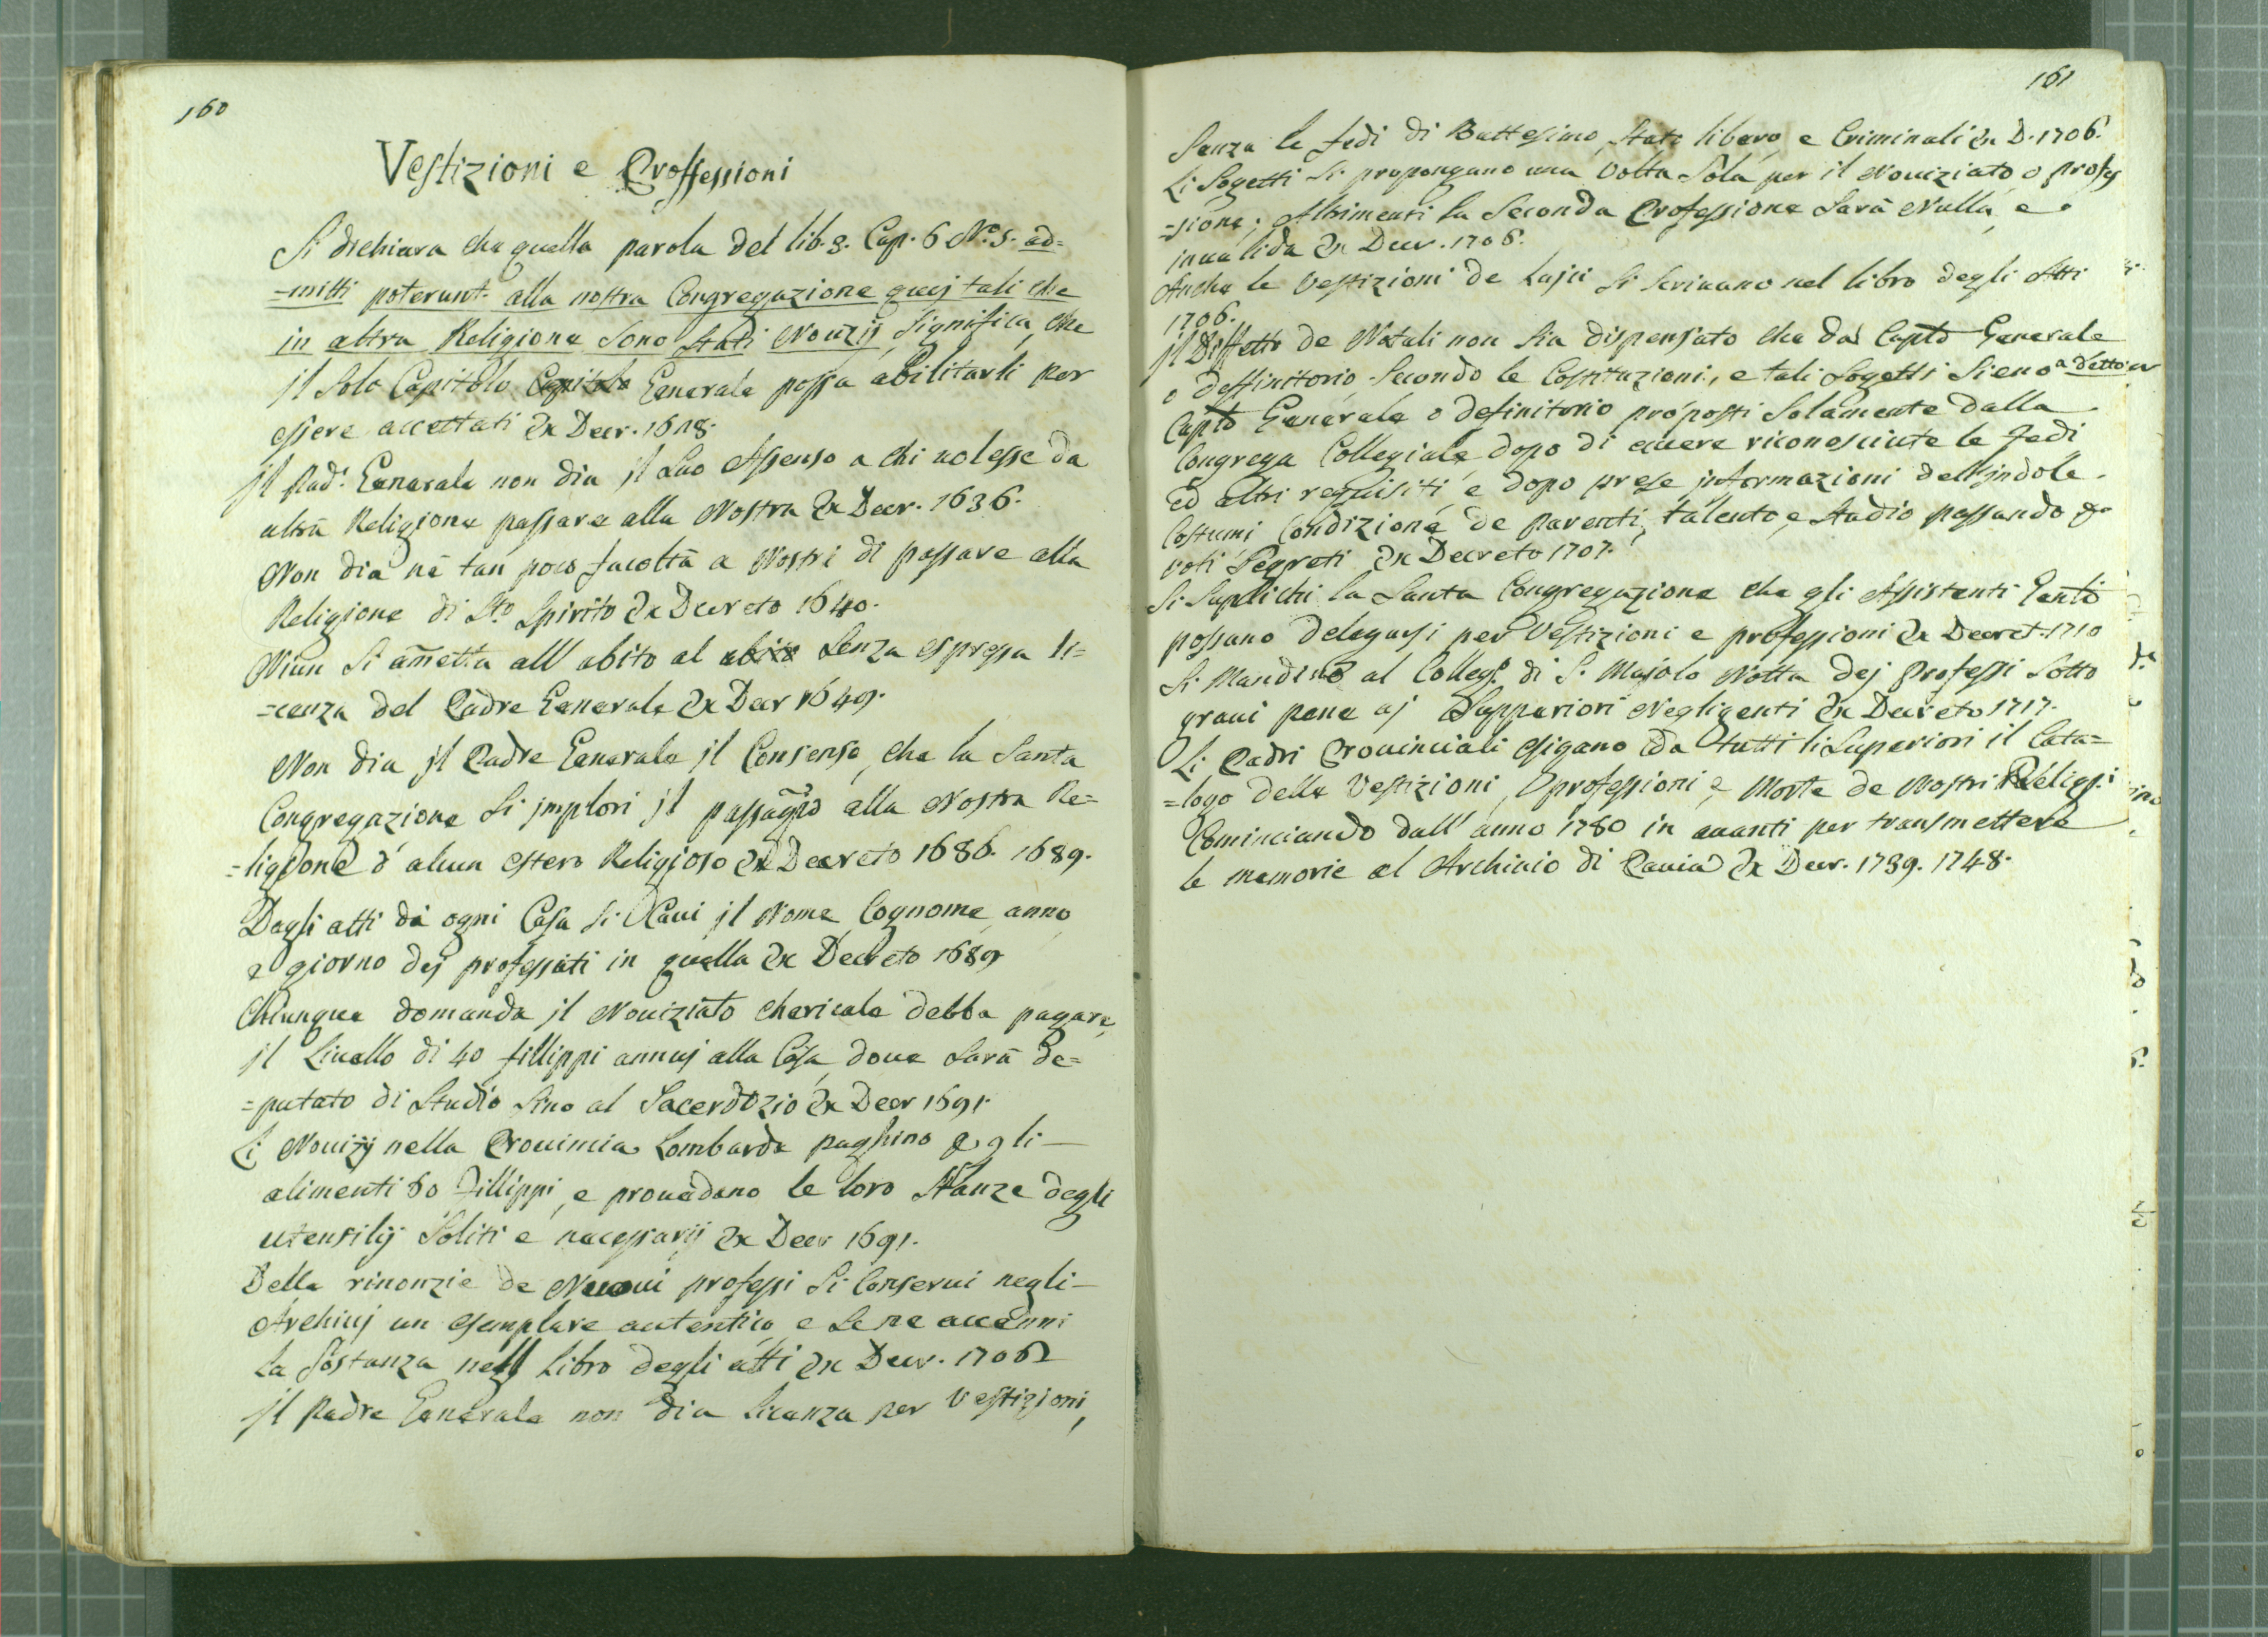 160
Vestizioni e Proffessioni
Si dichiara che quella parola del lib. 3. Cap. 6 N.º 5. ad=
=mitti poterunt alla nostra Congregazione quej tali che
in altra Religione sono stati Novizij, significa, che
jl solo Capitolo Capitolo Generale possa abilitarli per
essere accettati Ex Decr. 1618.
jl Pad.e Generale non dia jl suo Assenso a chi volesse da
altra Religione passare alla Nostra Ex Decr. 1636.
Non dia nè tan poco facoltà a Nostri di passare alla
Religione di Sto Spirito Ex Decreto 1640.
Niun si am̄etta all' abito al abito senza espressa li=
=cenza del Padre Generale Ex Decr 1649.
Non dia jl Padre Generale jl Consenso, che la Santa
Congregazione si jmplori jl passagio alla Nostra Re=
=ligione d' alcun estero Religioso Ex Decreto 1686. 1689.
Dagli atti di ogni Casa si Cavi jl Nome, Cognome, anno,
e giorno dej professati in quella Ex Decreto 1689
Chiunque domanda jl Noviziato Chericale debba pagare
jl Livello di 40 fillippi annuj alla Casa, dove sarà de=
=putato di Studio sino al Sacerdozio Ex Decr 1691.
Li Novizij nella Provincia Lombarda paghino p gli
alimenti 80 Fillippi, e provedano le loro Stanze degli
utensilij soliti e necessarij Ex Decr 1691.
Delle rinonzie de Nuovi professi si Conservi negli
Archivj un esemplare autentico e se ne accenni
la sostanza nell Libro degli atti Ex Decr. 1706
jl Padre Generale non dia licenza per Vestizioni,
161
Senza le fedi di Battesimo, stato libero, e Criminali Ex D. 1706.
Li Sogetti si propongano una volta sola per il Noviziato o profes
=sione; Altrimenti la Seconda Professione sarà Nulla, e
invalida Ex Decr. 1706.
Anche le Vestizioni de Lajci si scrivano nel libro degli Atti
1706.
jl Diffetto de Natali non sia dispensato che dal Capto Generale
o deffinitorio secondo le Costituzioni, e tali Sogetti sieno a detto
Capto Generale o definitorio proposti solamente dalla
Congrega Collegiale dopo di avere riconosciute le Fedi
ed altri requisiti, e dopo prese jnformazioni dell' jndole
Costumi Condizione de parenti, talento, e studio passando p
voti Segreti Ex Decreto 1707.
Si Suplichi la Santa Congregazione che gli Assistenti Genti
possano delegarsi per Vestizioni e professioni Ex Decret. 1710
Si Mandino al Colleg.º di S. Majolo Notta dej Professi sotto
gravi pene aj Supperiori Negligenti Ex Decreto 1717.
Li Padri Provinciali esigano da tutti li Superiori il Cata=
=logo delle Vestizioni, professioni e, Morte de Nostri Religs.i
Cominciando dall' anno 1780 in avanti per transmettere
le memorie al Archivio di Pavia Ex Decr. 1739. 1748.